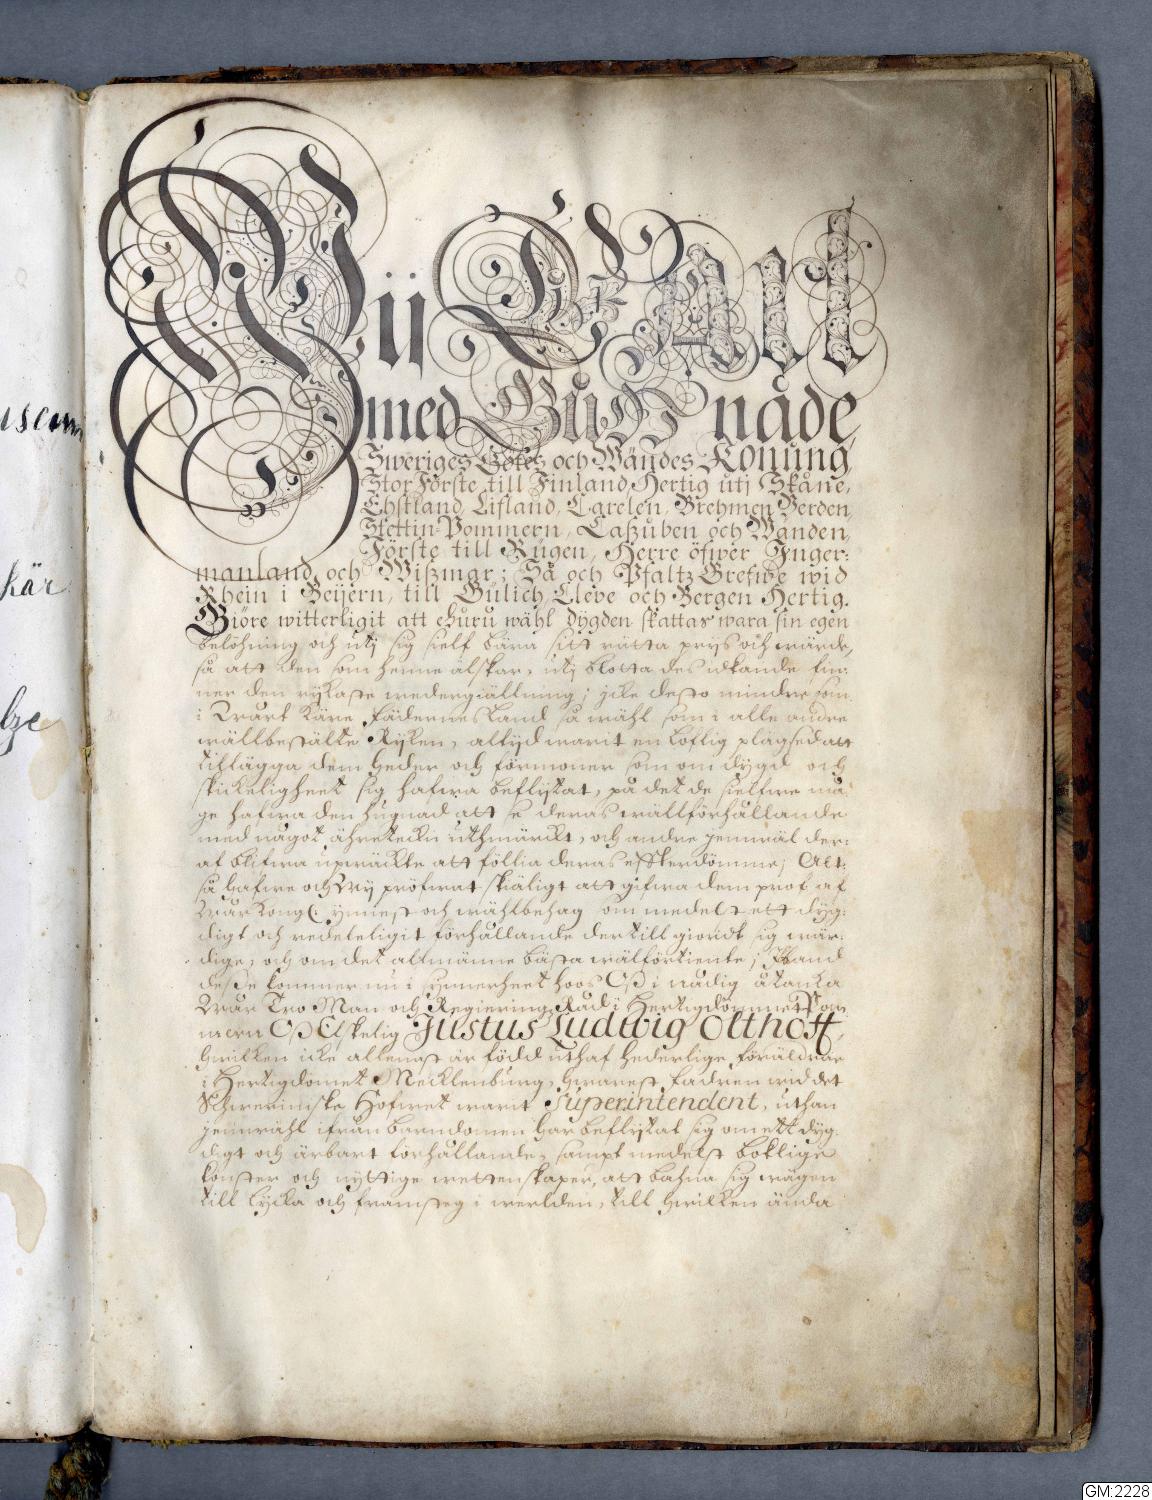 Wii CARl
med GudZ nåde,
Sweriges Götes och Wändes Konung,
StorFörste till Finland, Hertig utj Skåne,
Ehstland, Lifland, Carelen, Brehmen, Verden,
Stettin-Pommern, Caßuben och Wänden,
Förste till Rügen, Herre öfwer Inger:
manland och Wißmar; Så och PfaltzGrefwe wid
Rhein i Beijern, till Gülich, Cleve och Bergen Hertig.
Giöre witterligit att ehuru wähl dygden skattas wara sin egen
belöhning och utj sig sielf bära sitt rätta prijs och wärde,
så att den som henne älskar, utj blotta des idkande fin:
ner den rijkaste wedergiällning; icke desto mindre som
i Wårt Käre Fädernesland så wähl som i alle andre
wällbestälte Rijken, altijd warit en loflig plägsed att
tillägga dem heder och förmoner som om dygd och
skickeligheet sig hafwa beflijtat, på det de sielfwe må:
ge hafwa den hugnad att se deras wällförhållande
med något ähretecken uthmärckt, och andre jemwäl der:
af blifwa upwäckte att föllia deras effterdömme; Alt:
så hafwe och Wij pröfwat skiäligt att gifwa dem prof af
Wår Kongl. ynnest och wählbehag som medelst ett dyg:
digt och redeleligit förhållande dertill giordt sig wär:
dige, och om det allmänne bästa wälförtiente; Ibland
deße kommer nu i synnerheet hoos Oß i nådig åtancka
Wår Tro Man och Regierings Råd i Hertigdömmet Pom
mern Oß Elskelig Justus Ludwig Olthoff,
hwilken icke allenast är född uthaf hederlige föräldrar
i Hertigdömet Mecklenburg, hwarest Fadren wid det
Schwerinske Hofwet warit Superintendent, uthan
jemwähl ifrån barndomen har beflijtat sig om ett dyg:
digt och ärbart förhållande, sampt medelst boklige
konster och nyttige wettenskaper, att bahna sig wägen
till lycka och framsteg i werlden, till hwilken ända
kär
GM:2228